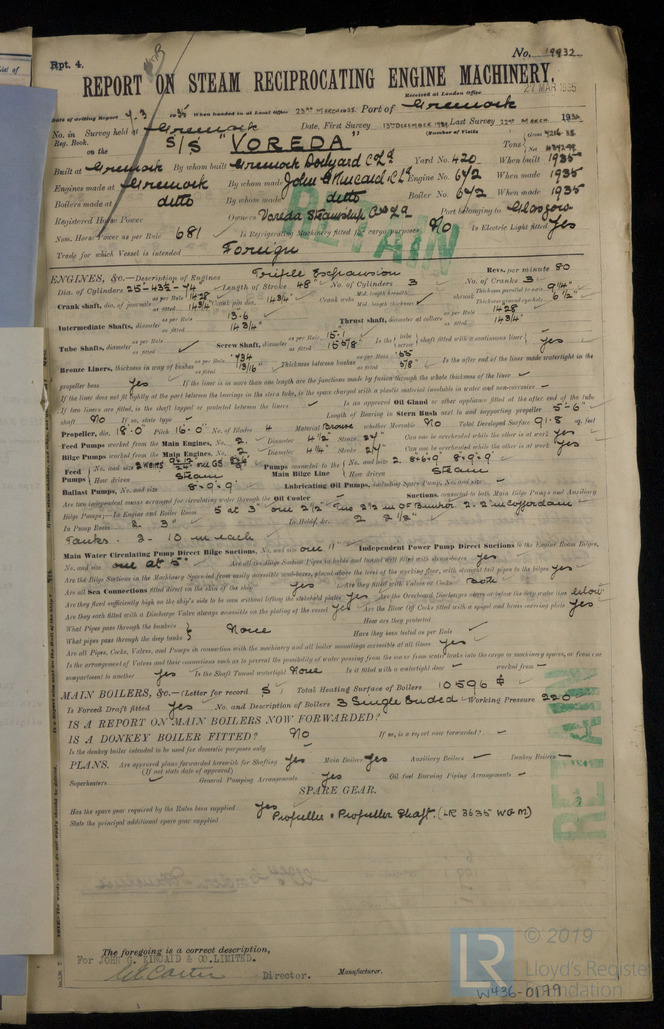 Rpt. 4.
No. 19932
REPORT ON STEAM RECIPROCATING ENGINE MACHINERY.
Received at London Office 27 MAR 1935
Date of writing Report 193 When handed in at Local Office 23RD MARCH 1935 Port of Greenock
No. in Survey held at Greenock Date, First Survey 13TH DECEMBER 1934 Last Survey 22ND MARCH 193
Reg. Book. (Number of Visits
on the S/S "VOREDA" Tons Gross Net
Built at Greenock By whom built Greenock Dockyard Co Ld Yard No. 420 When built 1935
Engines made at Greenock By whom made John G Kincaid & Co Ld Engine No. 642 When made 1935
Boilers made at ditto By whom made ditto Boiler No. 642 When made 1935
Registered Horse Power Owners Voreda Steamship Co Ld Port belonging to Glasgow
Nom. Horse Power as per Rule 681 Is Refrigerating Machinery fitted for cargo purposes No Is Electric Light fitted Yes
Trade for which Vessel is intended Foreign
RETAIN
ENGINES, &c.—Description of Engines Triple Expansion Revs. per minute 80
Dia. of Cylinders 25-43½-74 Length of Stroke 48" No. of Cylinders 3 No. of Cranks 3
Crank shaft, dia. of journals as per Rule 14.28 as fitted 14¾" Crank pin dia. 14¾" Crank webs Mid. length breadth Mid. length thickness shrunk Thickness parallel to axis 9¼" Thickness around eyehole 6½"
Intermediate Shafts, diameter as per Rule 13.6 as fitted 14¾" Thrust shaft, diameter at collars as per Rule 14.28 as fitted 14¾"
Tube Shafts, diameter as per Rule as fitted Screw Shaft, diameter as per Rule 15.1 as fitted 15⅝" Is the tube screw shaft fitted with a continuous liner Yes
Bronze Liners, thickness in way of bushes as per Rule .734 as fitted 13/16" Thickness between bushes as per Rule .55 as fitted ⅝" Is the after end of the liner made watertight in the
propeller boss Yes If the liner is in more than one length are the junctions made by fusion through the whole thickness of the liner
If the liner does not fit tightly at the part between the bearings in the stern tube, is the space charged with a plastic material insoluble in water and non-corrosive
If two liners are fitted, is the shaft lapped or protected between the liners Is an approved Oil Gland or other appliance fitted at the after end of the tube
shaft No If so, state type Length of Bearing in Stern Bush next to and supporting propeller 5-6"
Propeller, dia. 18-0 Pitch 16-0 No. of Blades 4 Material Bronze whether Moveable No Total Developed Surface 91.8 sq. feet
Feed Pumps worked from the Main Engines, No. 2 Diameter 4½" Stroke 24" Can one be overhauled while the other is at work Yes
Bilge Pumps worked from the Main Engines, No. 2 Diameter 4¼" Stroke 24" Can one be overhauled while the other is at work Yes
Feed Pumps No. and size How driven Steam Pumps connected to the Main Bilge Line No. and size 2. 8-6-9 8-9-9 How driven Steam
Ballast Pumps, No. and size 8-9-9 Lubricating Oil Pumps, including Spare Pump, No. and size
Are two independent means arranged for circulating water through the Oil Cooler Suctions, connected to both Main Bilge Pumps and Auxiliary
Bilge Pumps;—In Engine and Boiler Room 5 at 3" one 2½" Two 2½ in OF Bunker 2-2" in Cofferdam
In Pump Room 2 3" In Holds, &c. 2 2½"
Tanks. 2-10 in each
Main Water Circulating Pump Direct Bilge Suctions, No. and size one 11" Independent Power Pump Direct Suctions to the Engine Room Bilges,
No. and size one at 5" Are all the Bilge Suction Pipes in holds and tunnel well fitted with strum-boxes Yes
Are the Bilge Suctions in the Machinery Space led from easily accessible mud-boxes, placed above the level of the working floor, with straight tail pipes to the bilges Yes
Are all Sea Connections fitted direct on the skin of the ship Yes Are they fitted with Valves or Cocks Both
Are they fixed sufficiently high on the ship's side to be seen without lifting the stokehold plates Yes Are the Overboard Discharges above or below the deep water line below
Are they each fitted with a Discharge Valve always accessible on the plating of the vessel Yes Are the Blow Off Cocks fitted with a spigot and brass covering plate Yes
What Pipes pass through the bunkers None How are they protected
What pipes pass through the deep tanks Have they been tested as per Rule
Are all Pipes, Cocks, Valves, and Pumps in connection with the machinery and all boiler mountings accessible at all times Yes
Is the arrangement of Valves and their connections such as to prevent the possibility of water passing from the sea or from water tanks into the cargo or machinery spaces, or from one
compartment to another Yes Is the Shaft Tunnel watertight None Is it fitted with a watertight door worked from
MAIN BOILERS, &c.—(Letter for record S) Total Heating Surface of Boilers 10596
Is Forced Draft fitted Yes No. and Description of Boilers 3 Single Ended Working Pressure 220
IS A REPORT ON MAIN BOILERS NOW FORWARDED?
IS A DONKEY BOILER FITTED? No If so, is a report now forwarded?
Is the donkey boiler intended to be used for domestic purposes only
PLANS. Are approved plans forwarded herewith for Shafting Yes Main Boilers Yes Auxiliary Boilers Donkey Boilers
(If not state date of approval)
Superheaters General Pumping Arrangements Yes Oil fuel Burning Piping Arrangements
SPARE GEAR.
RETAIN
Has the spare gear required by the Rules been supplied Yes
State the principal additional spare gear supplied Propeller & Propeller Shaft. (LR 3635 WGM)
The foregoing is a correct description,
For JOHN G. KINCAID & CO. LIMITED.
Director. Manufacturer.
LR © 2019
Lloyd's Register
Foundation
W436-0199